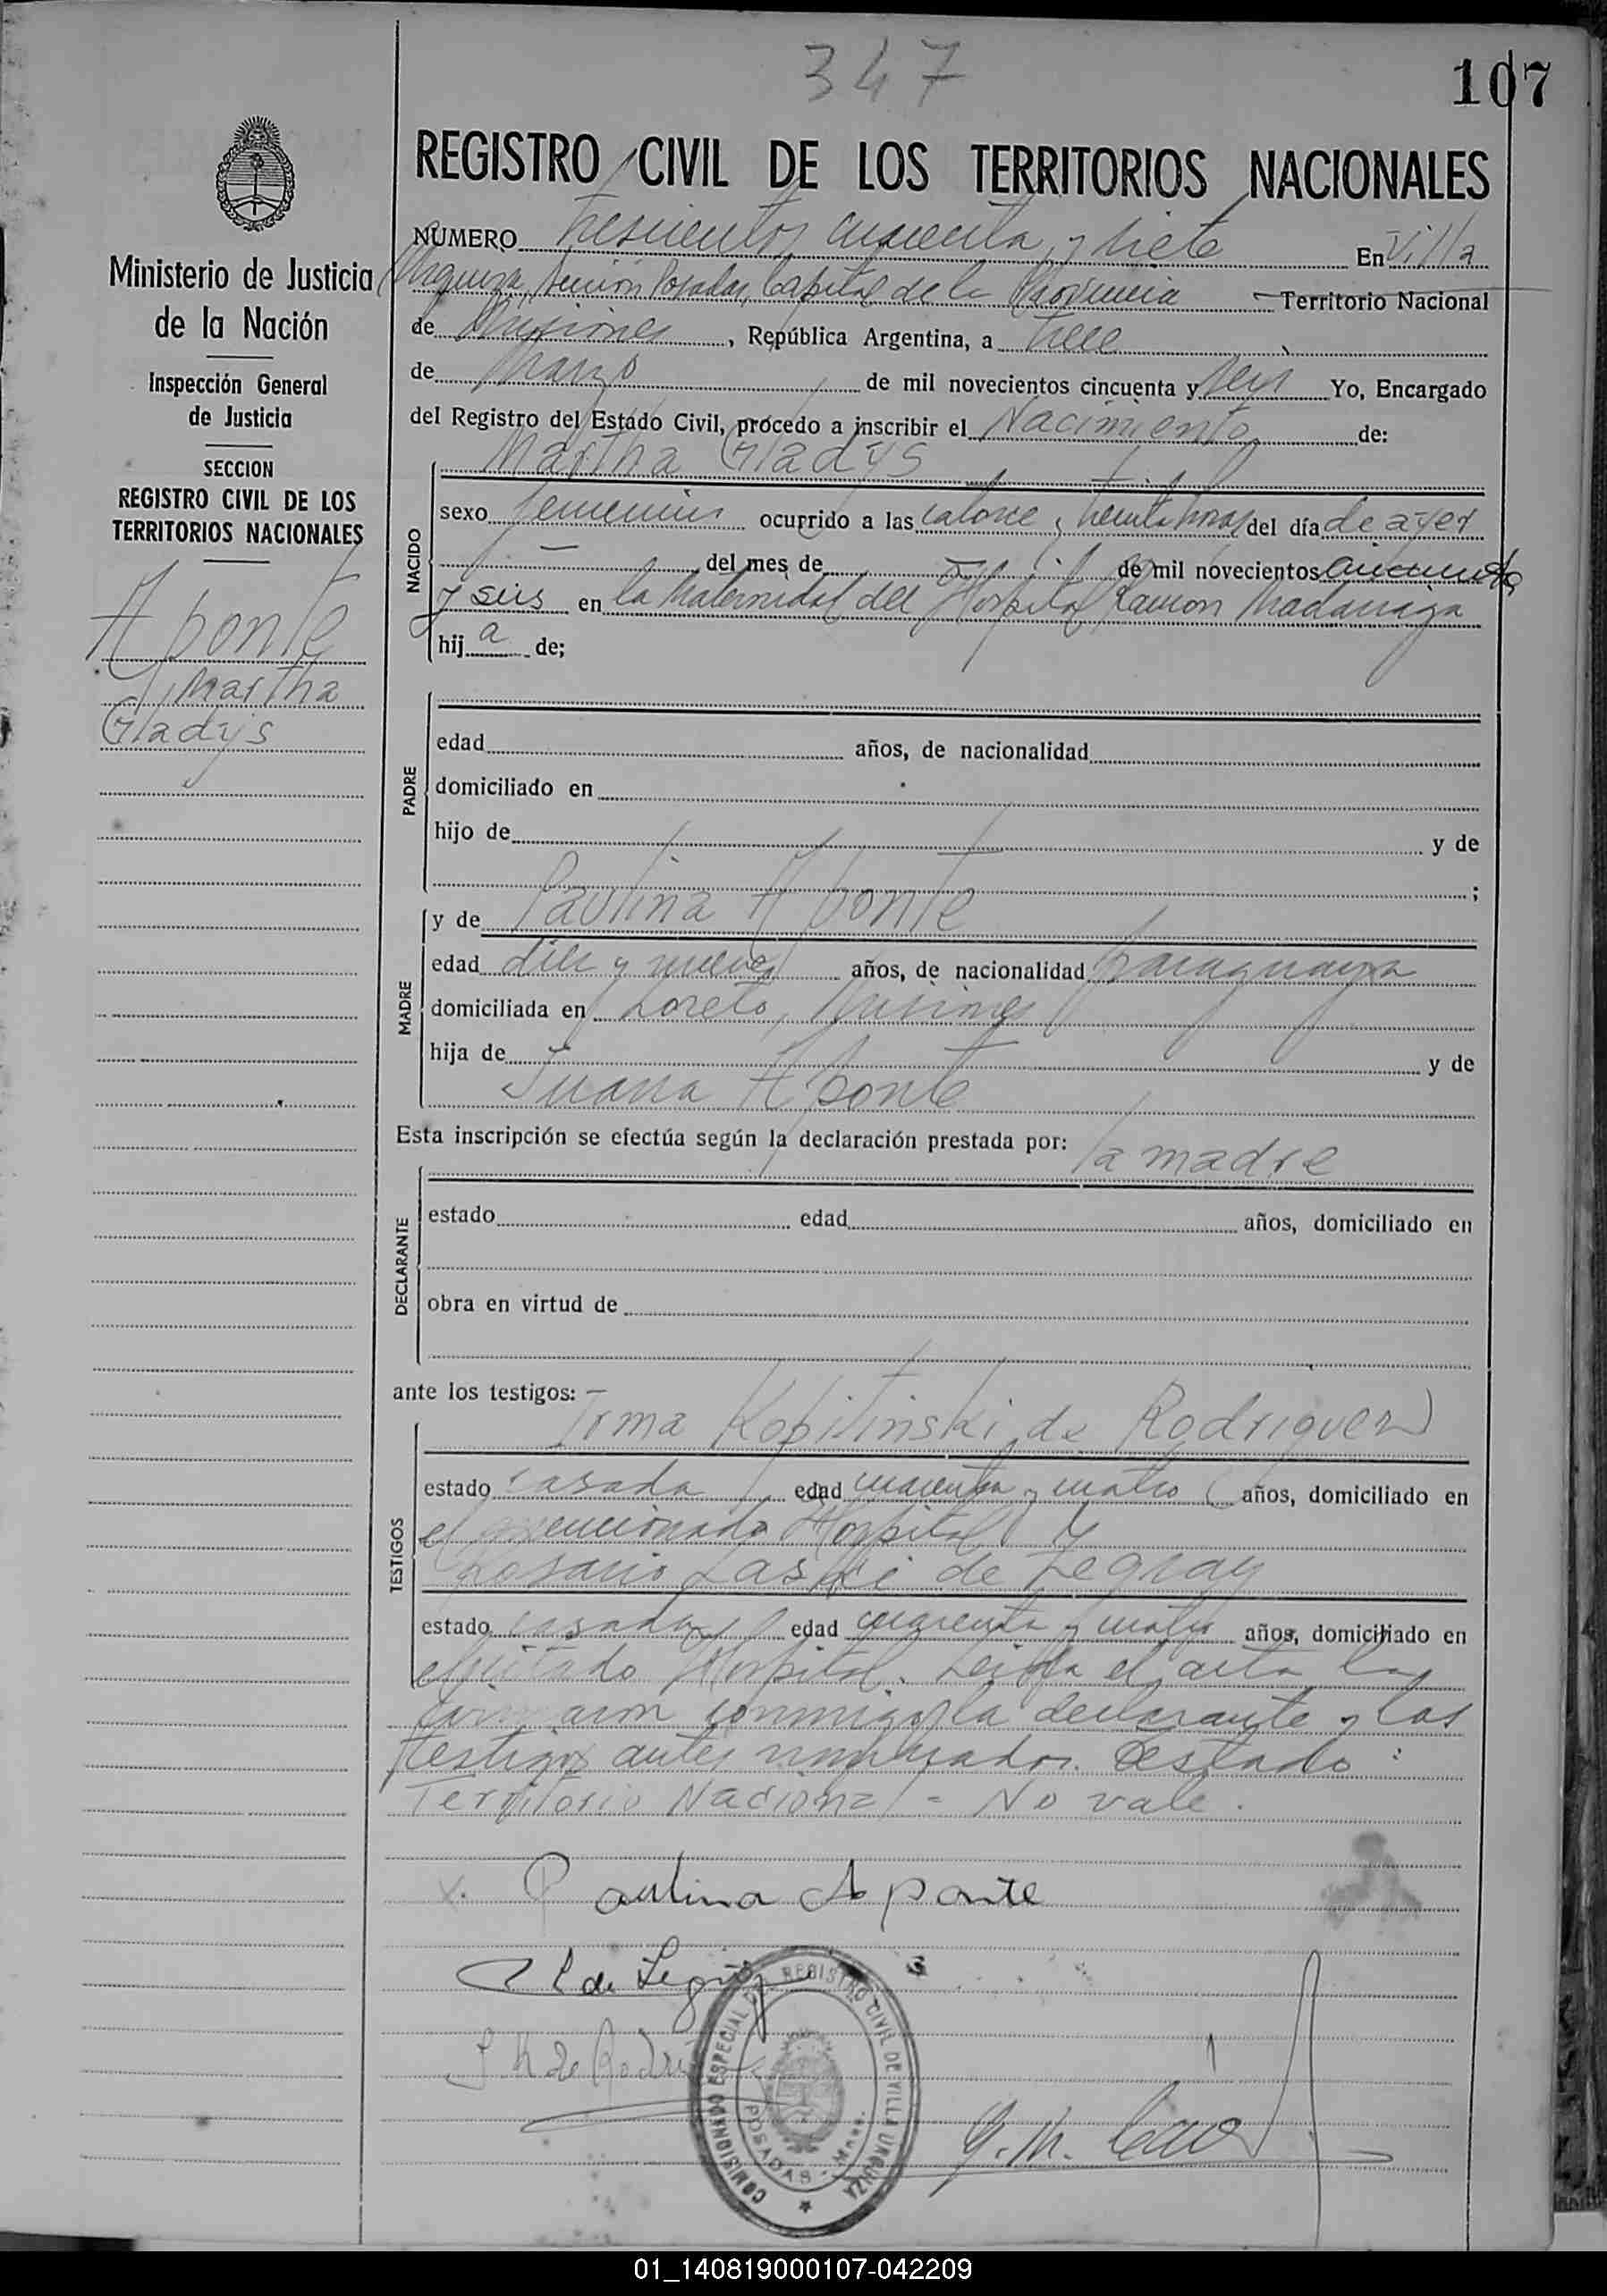 347
107
Ministerio de Justicia
de la Nación
Inspección General
de Justicia
SECCION
REGISTRO CIVIL DE LOS
TERRITORIOS NACIONALES
Aponte
Martha
Gladys
REGISTRO CIVIL DE LOS TERRITORIOS NACIONALES
NUMERO trescientos cuarenta y siete En Villa
Urquiza, Sección Posadas, Capital de la Provincia Territorio Nacional
de Misiones, República Argentina, a trece
de Marzo de mil novecientos cincuenta y seis Yo, Encargado
del Registro del Estado Civil, procedo a inscribir el Nacimiento de:
Martha Gladys
NACIDO
sexo femenino ocurrido a las catorce y treinta horas del día de ayer
— del mes de — de mil novecientos cincuenta
y seis en la Maternidad del Hospital Ramón Madariaga
hij a de;
PADRE
edad años, de nacionalidad
domiciliado en
hijo de y de
;
MADRE
y de Paulina Aponte
edad diez y nueve años, de nacionalidad paraguaya
domiciliada en Loreto, Misiones
hija de — y de
Juana Aponte
Esta inscripción se efectúa según la declaración prestada por: la madre
DECLARANTE
estado edad años, domiciliado en
obra en virtud de
ante los testigos: —
TESTIGOS
Irma Kopitinski de Rodriguez
estado casada edad cuarenta y cuatro años, domiciliado en
el mencionado Hospital y
Rosario de Legray
estado casada edad cuarenta y cuatro años, domiciliado en
el citado Hospital. Leída el acta la
conmigo la declarante y los
testigos antes nombrados. Testado:
Territorio Nacional - No vale.
x. Paulina Aponte
R L de Legray
I K de Rodriguez
G. M.
COMISIONADO ESPECIAL DEL REGISTRO CIVIL DE VILLA URQUIZA
POSADAS - Mnes.
01_140819000107-042209